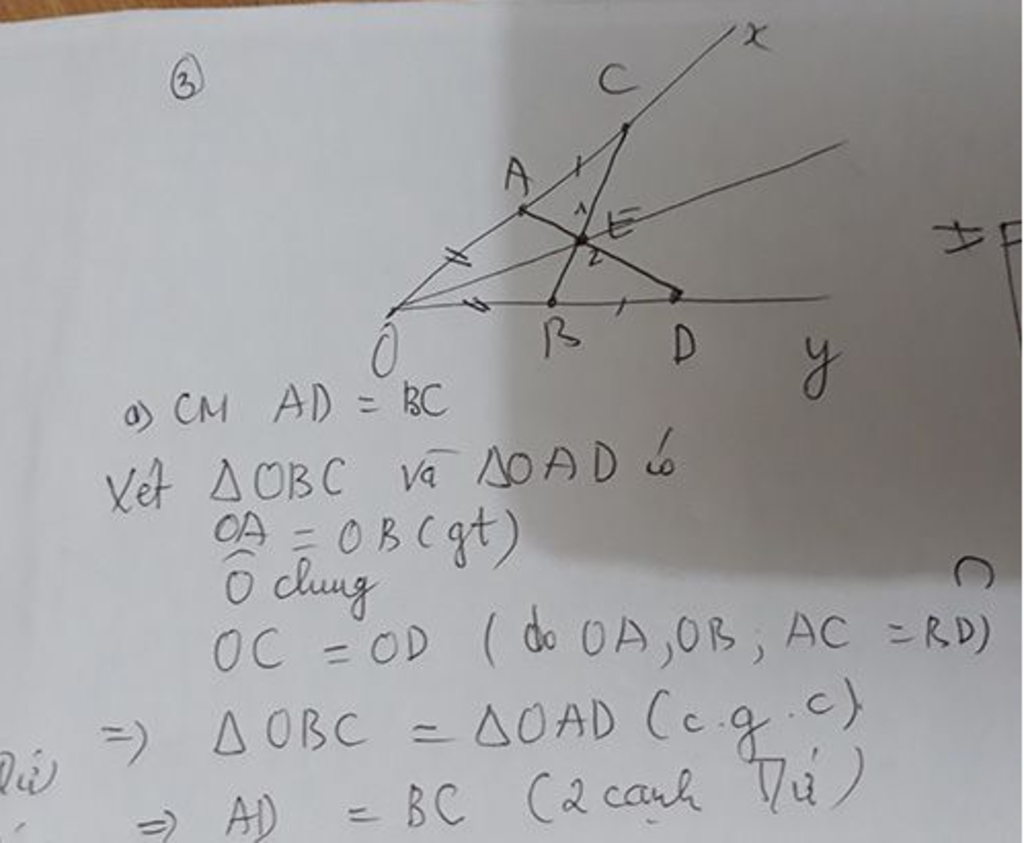 3
x
C
A
1
E
2
O
B
D
y
a) CM AD = BC
Xét ΔOBC và ΔOAD có
OA = OB (gt)
Ô chung
OC = OD ( do OA, OB ; AC = BD)
=> ΔOBC = ΔOAD (c.g.c)
=> AD = BC (2 cạnh )